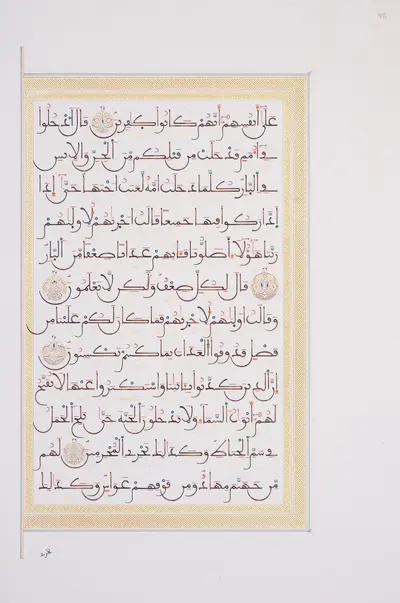 على أنفسهم أنهم كانوا كفرين قال ادخلوا
في أمم قد خلت من قبلكم من الجن والانس
في النار كلما دخلت أمة لعنت أختها حتى إذا
اداركوا فيها جميعا قالت اخريهم لاوليهم
ربنا هؤلاء اضلونا فاتهم عذابا ضعفا من النار
قال لكل ضعف ولكن لا تعلمون
وقالت اوليهم لاخريهم فما كان لكم علينا من
فضل فذوقوا العذاب بما كنتم تكسبون
ان الذين كذبوا بايتنا واستكبروا عنها لا تفتح
لهم ابواب السماء ولا يدخلون الجنة حتى يلج الجمل
في سم الخياط وكذلك نجزي المجرمين لهم
من جهنم مهاد ومن فوقهم غواش وكذلك
نجزي